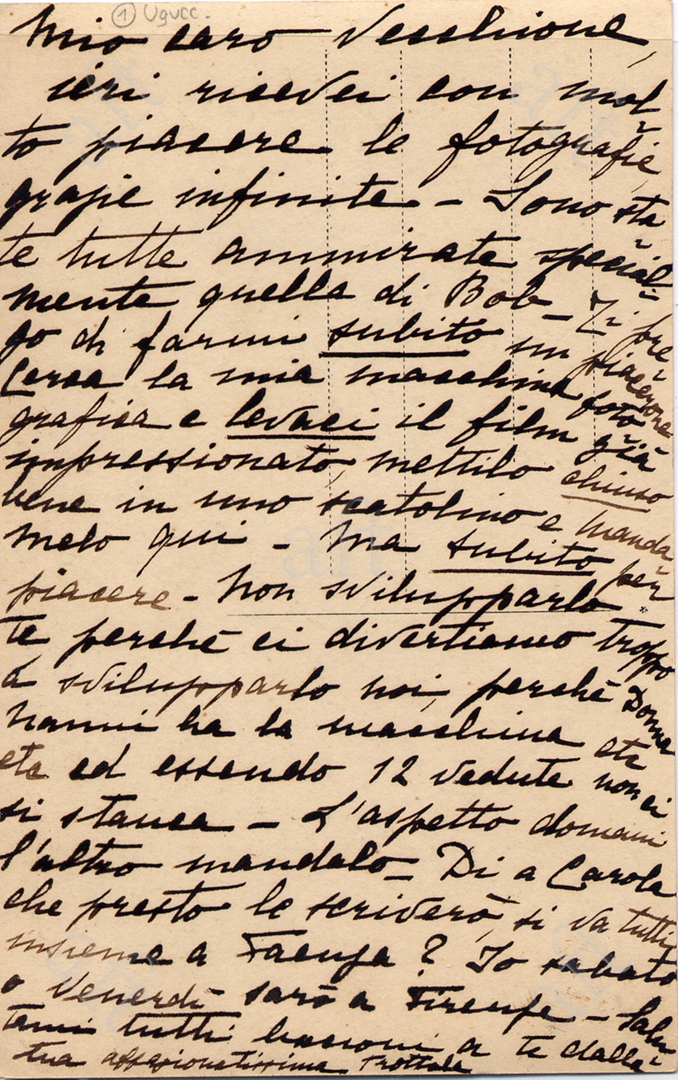 ① Ugucc.
Mio caro Vecchione,
ieri ricevei con mol-
to piacere le fotografie,
grazie infinite - Sono sta-
te tutte ammirate special-
mente quella di Bob - Ti pre-
go di farmi subito un piacerone
Cerca la mia macchina foto-
grafica e levaci il film già
impressionato, mettilo chiuso
bene in uno scatolino e manda-
melo qui - Ma subito per
piacere - Non svilupparlo
te perchè ci divertiamo troppo
a svilupparlo noi, perchè Donna
Nanni ha la macchina etc
etc ed essendo 12 vedute non ci
si stanca - L'aspetto domani
l'altro mandalo - Di a Carola
che presto le scriverò, si va tutti
insieme a Faenza? Io sabato
o Venerdì sarò a Firenze - Salu-
tami tutti bacioni a te dalla
tua affezionatissima